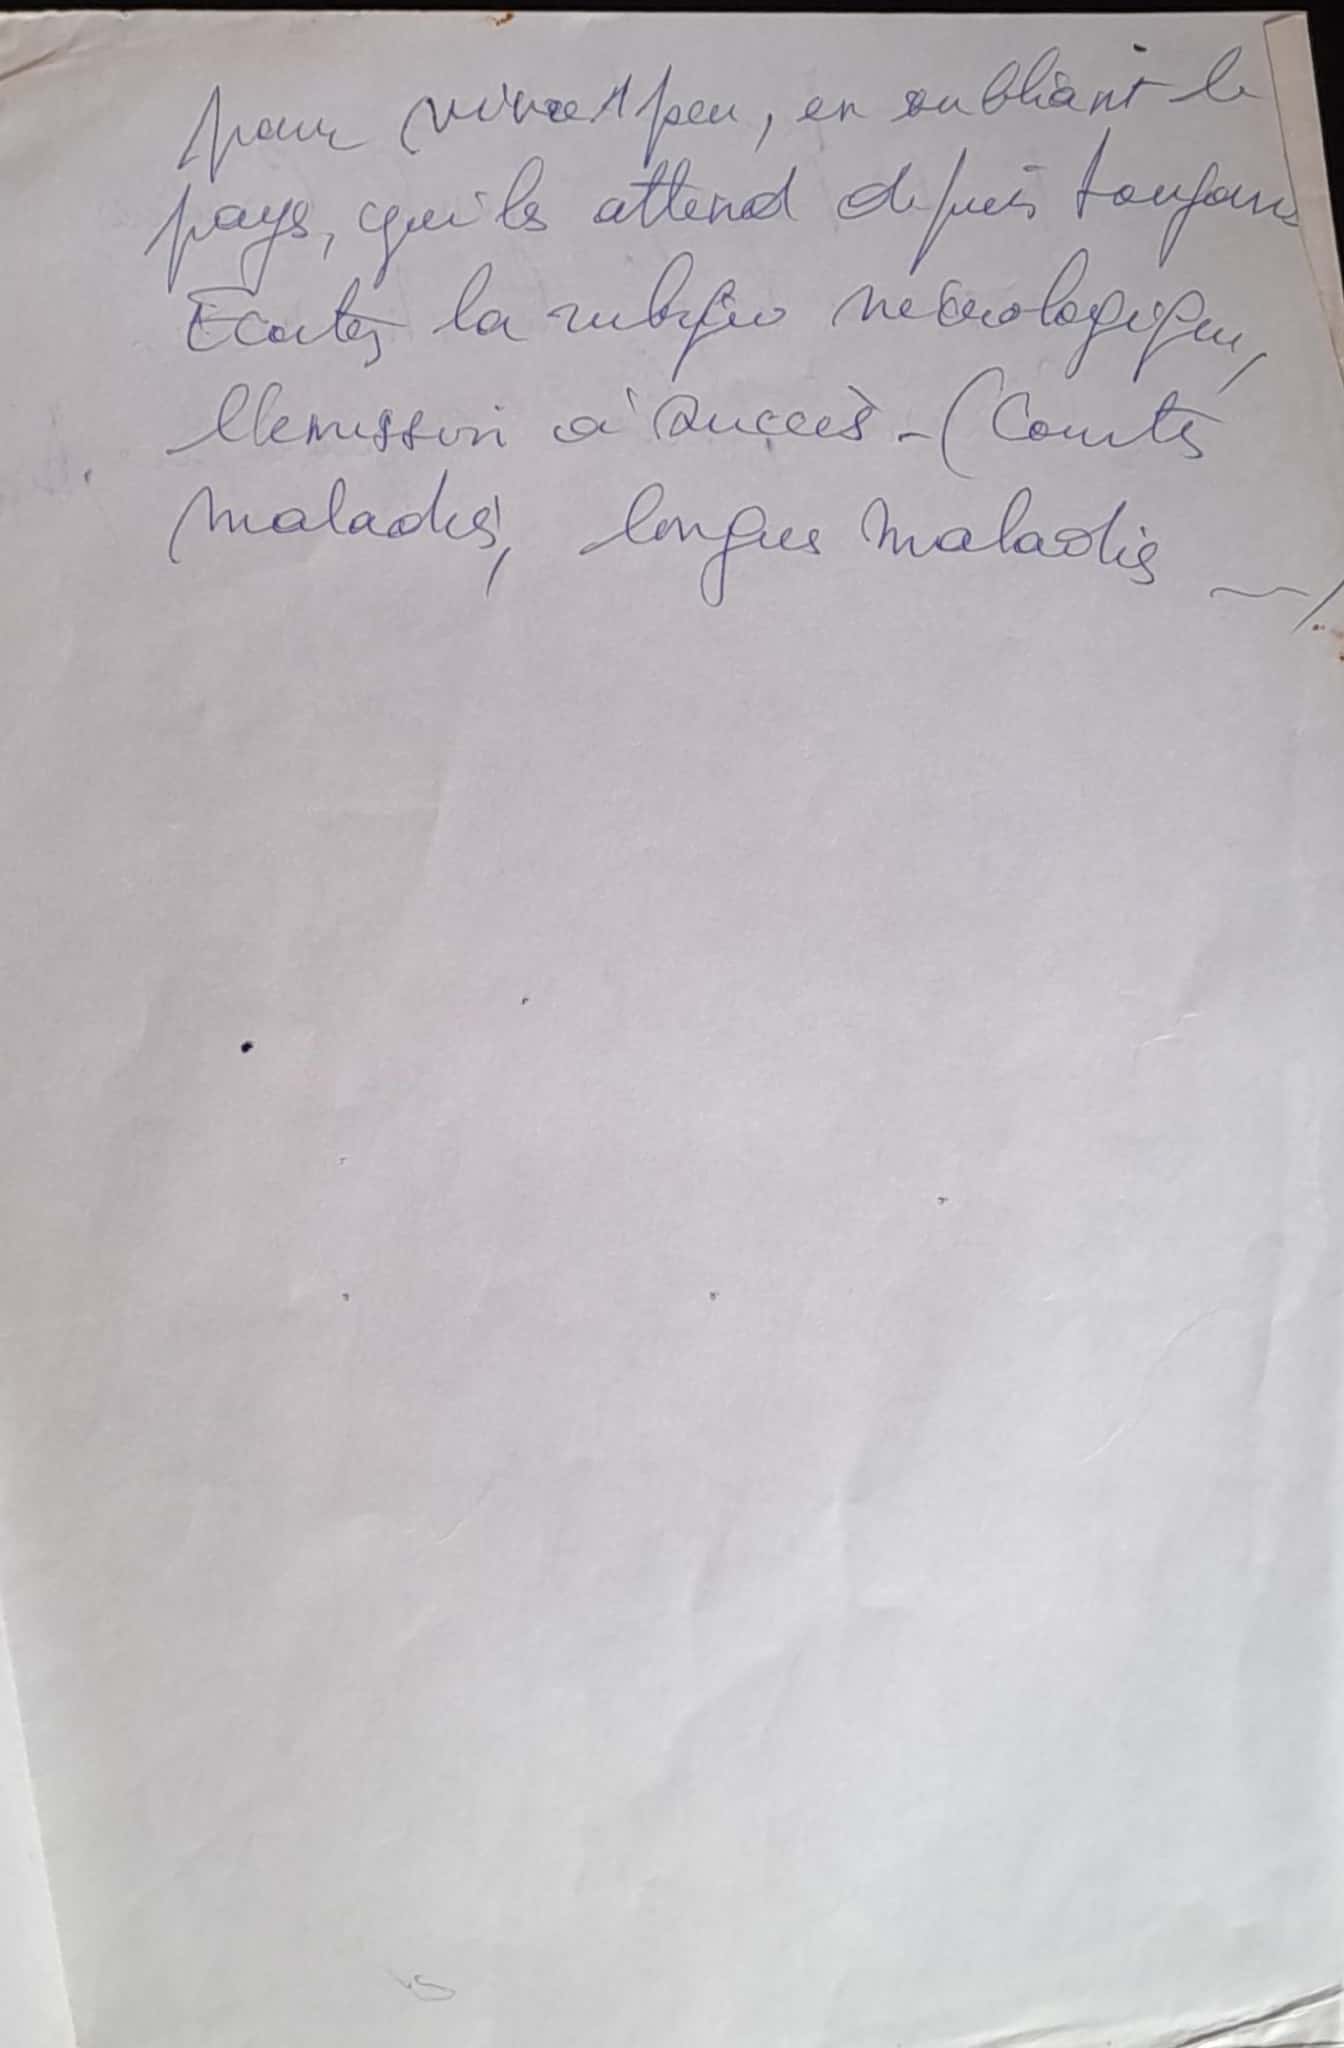 pour vivre 1 peu, en oubliant le
pays, qui les attend depuis toujours
Ecoutez la rubrique nécrologique,
l'émission à succès - (Courtes
maladies, longues maladies